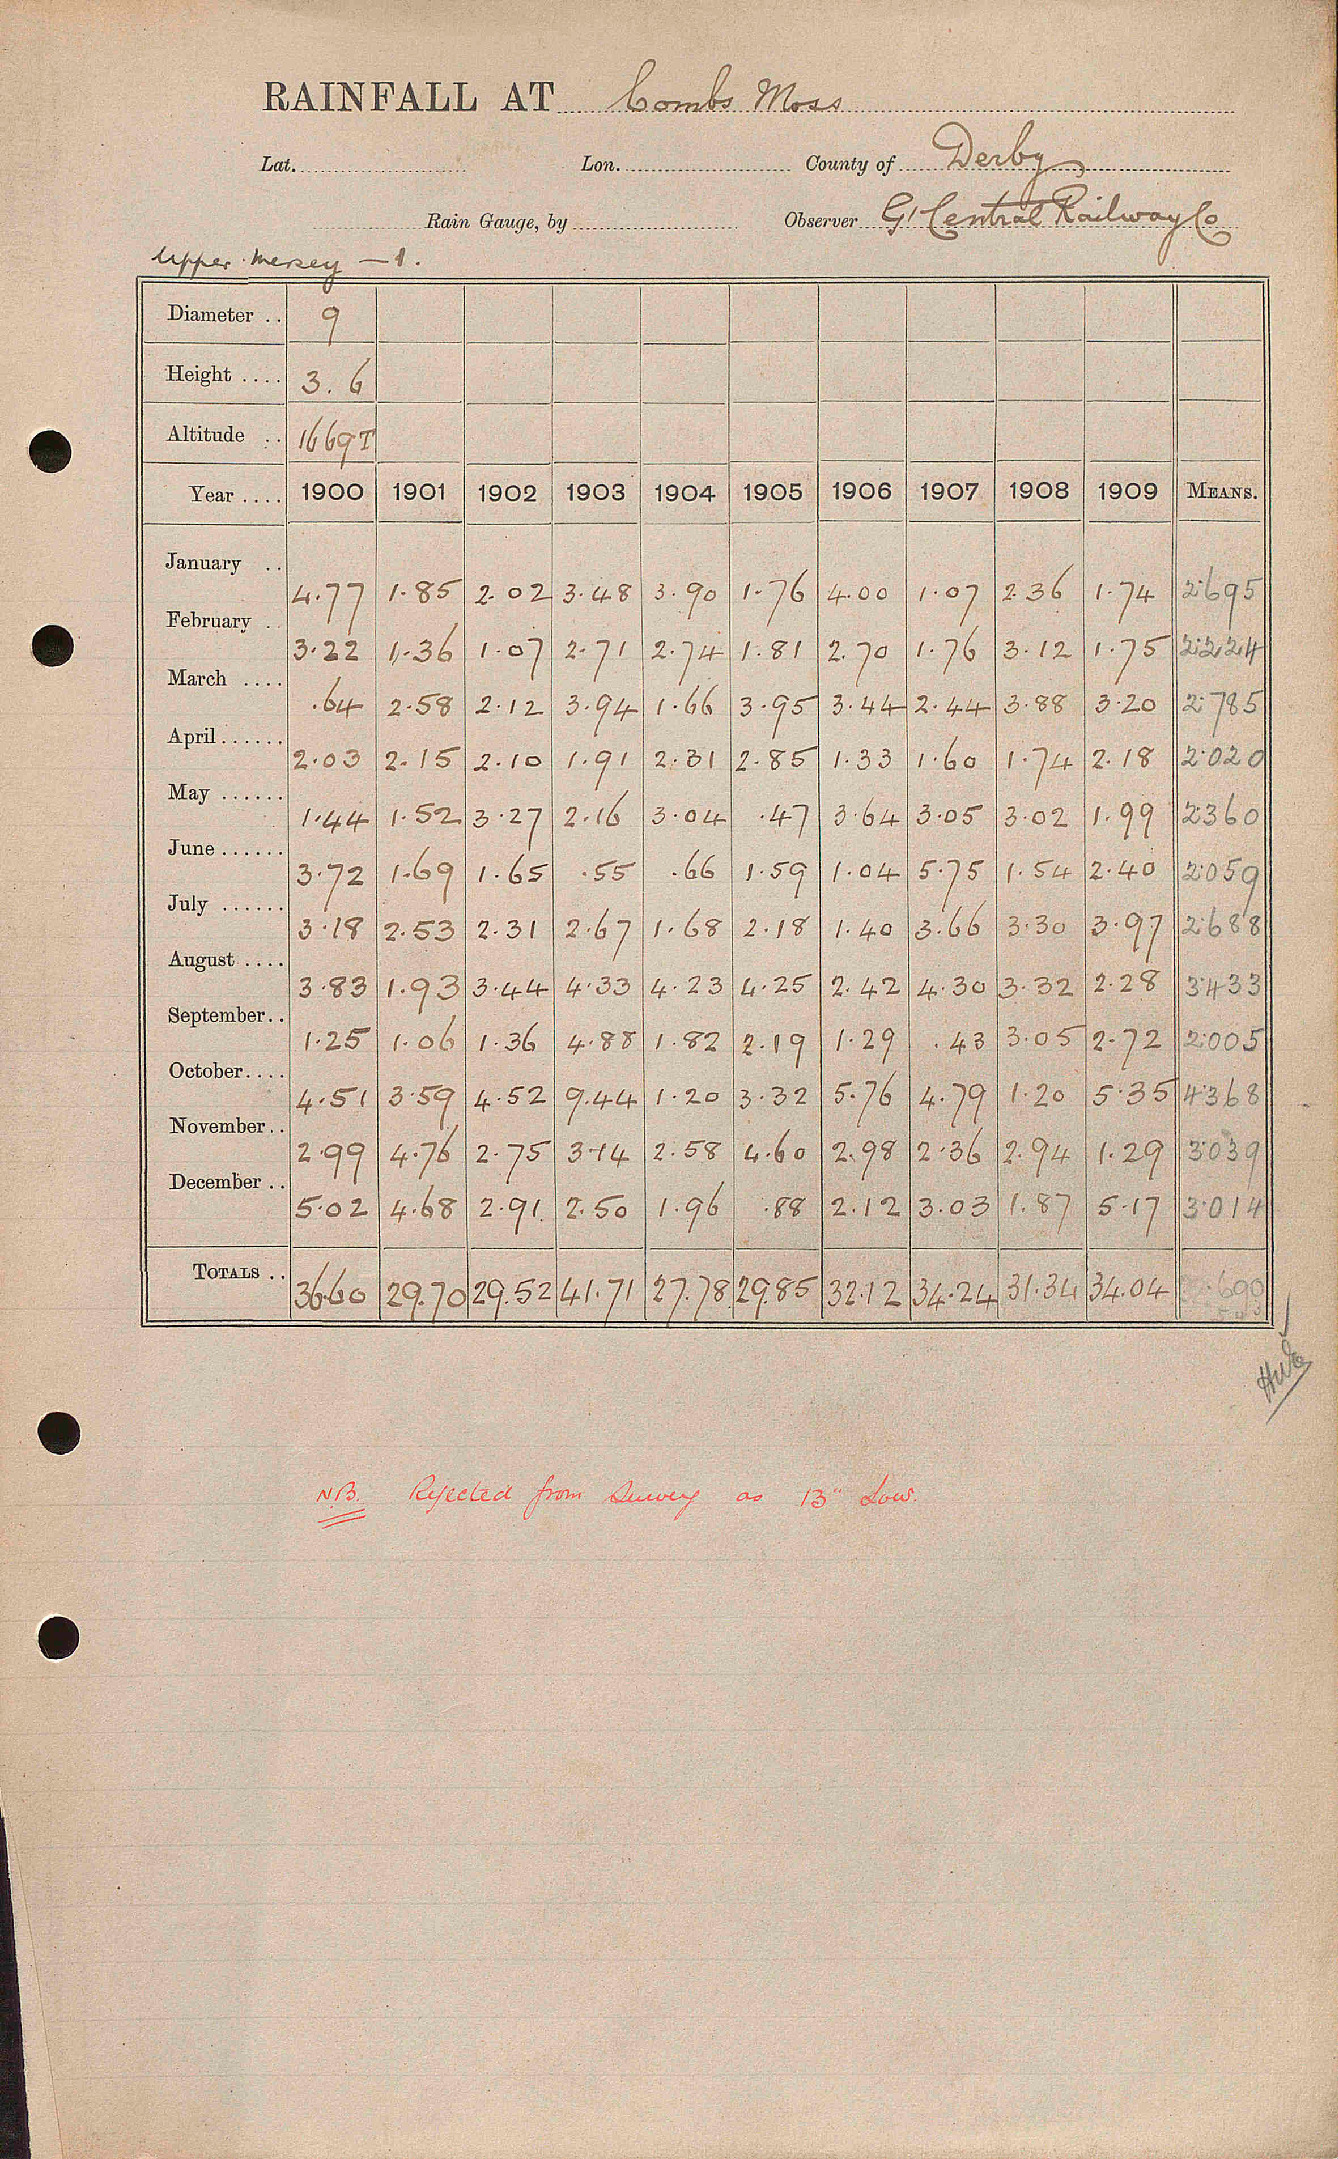 RAINFALL AT Combs Moss
Lat. Lon. County of Derby
Rain Gauge, by Observer Gt Central Railway Co
Upper Mersey — 1.
Diameter .. 9
Height .... 3. 6
Altitude .. 1669T
Year .... 1900 1901 1902 1903 1904 1905 1906 1907 1908 1909 MEANS.
January .. 4.77 1.85 2.02 3.48 3.90 1.76 4.00 1.07 2.36 1.74 2.695
February .. 3.22 1.36 1.07 2.71 2.74 1.81 2.70 1.76 3.12 1.75 2.224
March .... .64 2.58 2.12 3.94 1.66 3.95 3.44 2.44 3.88 3.20 2.785
April ...... 2.03 2.15 2.10 1.91 2.31 2.85 1.33 1.60 1.74 2.18 2.020
May ...... 1.44 1.52 3.27 2.16 3.04 .47 3.64 3.05 3.02 1.99 2.360
June ...... 3.72 1.69 1.65 .55 .66 1.59 1.04 5.75 1.54 2.40 2.059
July ...... 3.18 2.53 2.31 2.67 1.68 2.18 1.40 3.66 3.30 3.97 2.688
August .... 3.83 1.93 3.44 4.33 4.23 4.25 2.42 4.30 3.32 2.28 3.433
September.. 1.25 1.06 1.36 4.88 1.82 2.19 1.29 .43 3.05 2.72 2.005
October.... 4.51 3.59 4.52 9.44 1.20 3.32 5.76 4.79 1.20 5.35 4.368
November.. 2.99 4.76 2.75 3.14 2.58 4.60 2.98 2.36 2.94 1.29 3.039
December .. 5.02 4.68 2.91 2.50 1.96 .88 2.12 3.03 1.87 5.17 3.014
TOTALS .. 36.60 29.70 29.52 41.71 27.78 29.85 32.12 34.24 31.34 34.04
N.B. Rejected from Survey as 13" Low.